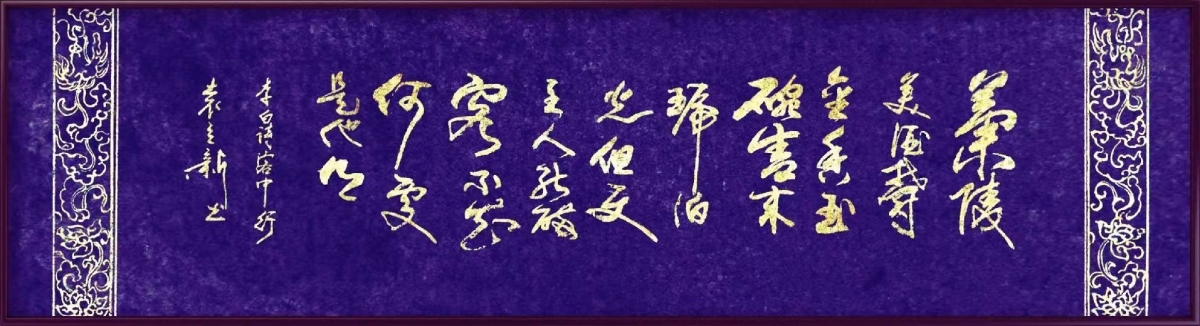 蘭陵
美酒鬱
金香玉
碗盛来
琥珀
光但使
主人能醉
客不知
何處
是他乡
李白诗客中行
新书